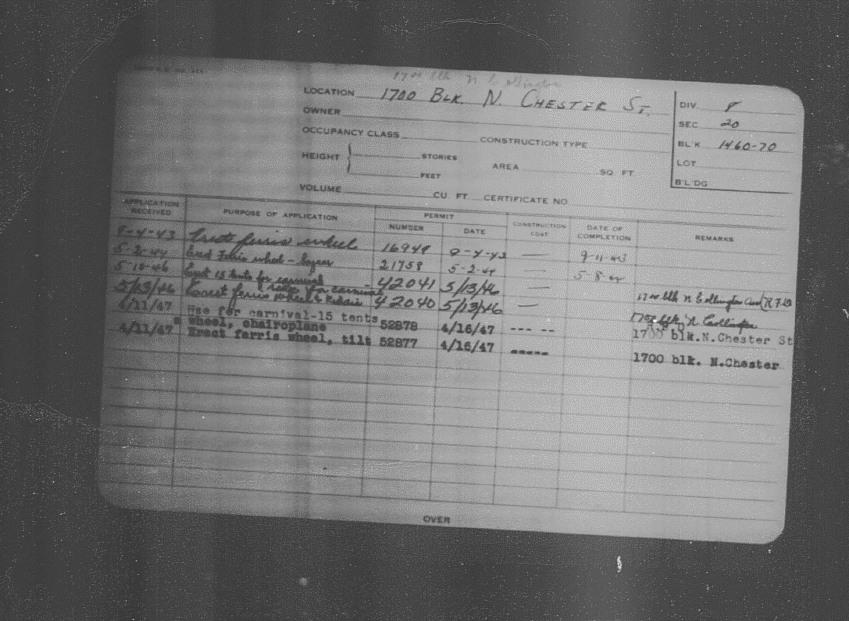 1700 Blk N Collington
LOCATION 1700 BLK. N. CHESTER ST.
DIV. 8
OWNER
SEC 20
OCCUPANCY CLASS CONSTRUCTION TYPE
BL'K 1460-70
HEIGHT STORIES AREA SQ. FT.
FEET
LOT
VOLUME CU. FT. CERTIFICATE NO.
B'L'DG
APPLICATION RECEIVED PURPOSE OF APPLICATION PERMIT CONSTRUCTION COST DATE OF COMPLETION REMARKS
NUMBER DATE
8-4-43 Erect ferris wheel 16948 8-4-43 — 9-11-43
5-2-44 Erect Ferris wheel - 21759 5-2-44 — 5-8-44
5-10-46 Erect 15 tents for carnival 42041 5/13/46 — 1700 blk N Collington Ave
5/13/46 Erect ferris wheel & rides for carnival 42040 5/13/46 — 1700 blk N Collington
4/11/47 Use for carnival-15 tents 52878 4/16/47 --- -- 1700 blk.N.Chester St
wheel, chairoplane
4/11/47 Erect ferris wheel, tilt 52877 4/16/47 ----- 1700 blk. N.Chester
OVER